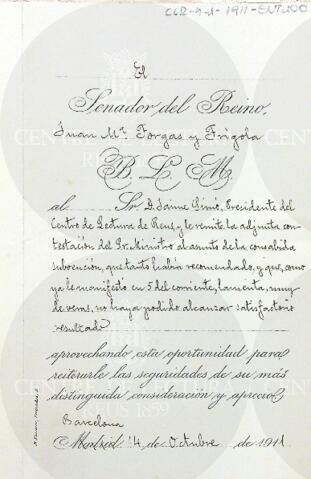 C62-9-1-1911-ENT400
El
Senador del Reino,
Juan Mª Forgas y Frígola
B. L. M.
al Sr. D. Jaime Simó, Presidente del
Centro de Lectura de Reus, y le remite la adjunta con-
testación del Sr. Ministro al asunto de la consabida
subvención, que tanto había recomendado, y que, como
ya le manifestó en 5 del corriente, lamenta, muy
de veras, no haya podido alcanzar satisfactorio
resultado
aprovechando esta oportunidad para
reiterarle las seguridades de su más
distinguida consideración y aprecio
Barcelona
Madrid 14 de Octubre de 1911
CENTRE DE LECTURA
REUS 1859